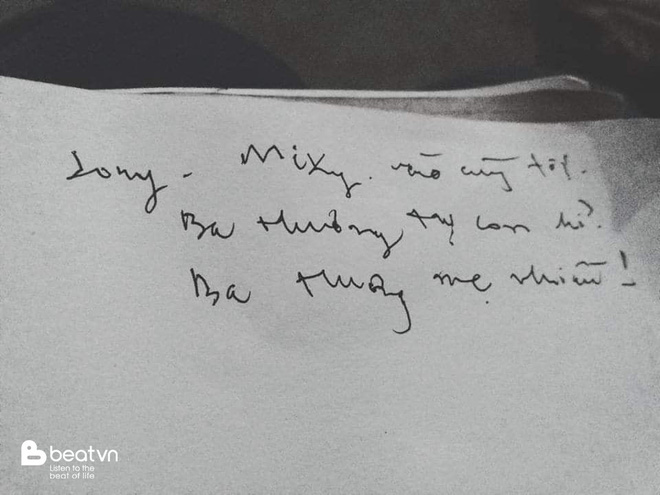 Sony - Mixy. vào cũng tốt.
Ba thương tụi con hỉ?
Ba thương mẹ nhiều!
beatvn
Listen to the
beat of life